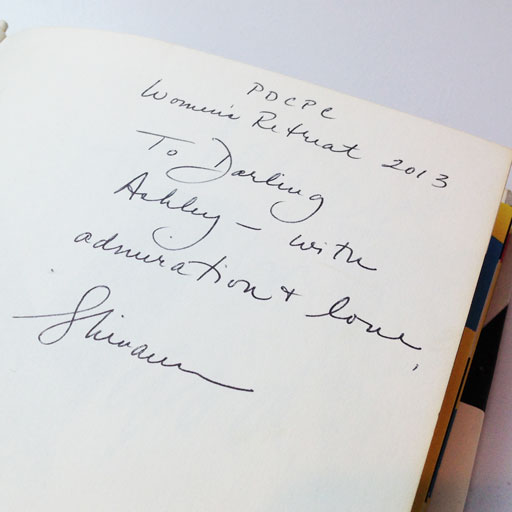 PDCPC
Women's Retreat 2013
To Darling
Ashley – with
admiration + love,